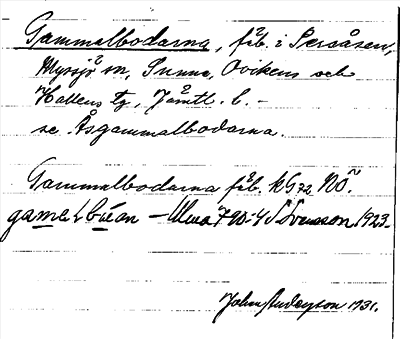 Gammalbodarna, fäb. i Persåsen,
Myssjö sn, Sunne, Ovikens och
Hallens tg, Jämtl. l. –
se Åsgammalbodarna.
Gammalbodarna fäb. kG 72 NÖ.
Ulma 790:4 Svensson 1923.
John Andersson 1931.